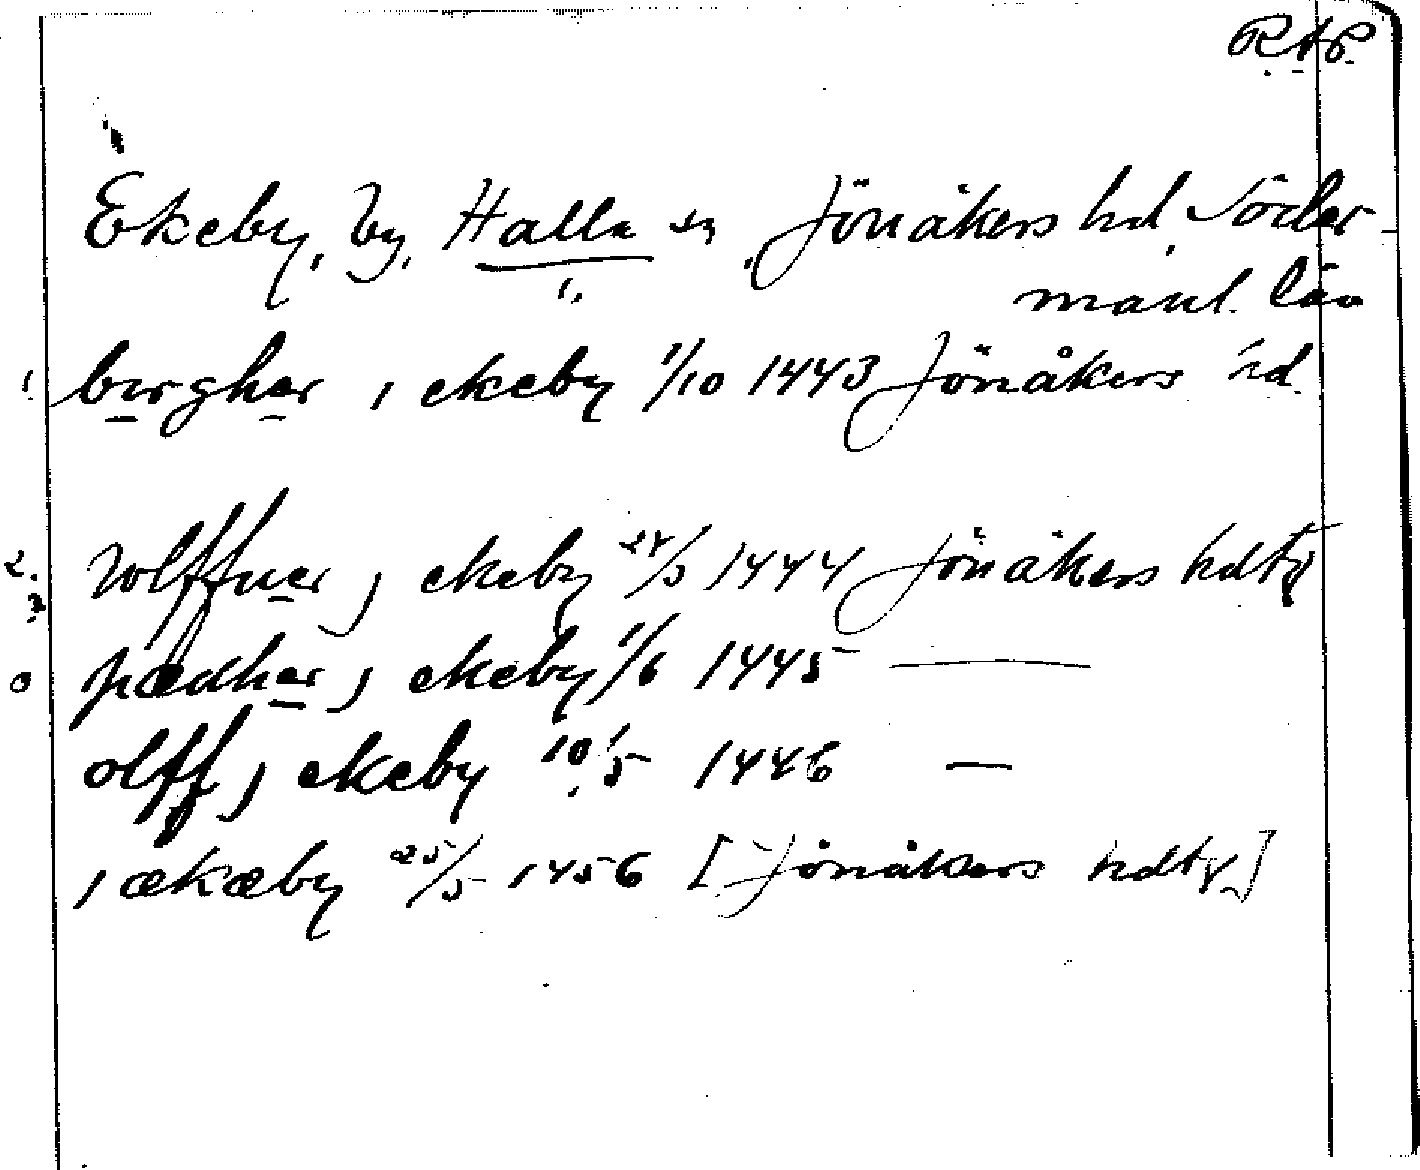 R.A.P.
Ekeby, by, Halla sn, Jönåkers hd, Söder-
manl. län
1.
1. birgher i ekeby 1/10 1443 Jönåkers hd.
2. wlffuer j ekeby 24/5 1444 Jönåkers hdtg
pædher j ekeby 1/6 1445 —
olff j ekeby 10/5 1446 —
i ækæby 25/5 1456 [Jönåkers hdtg]